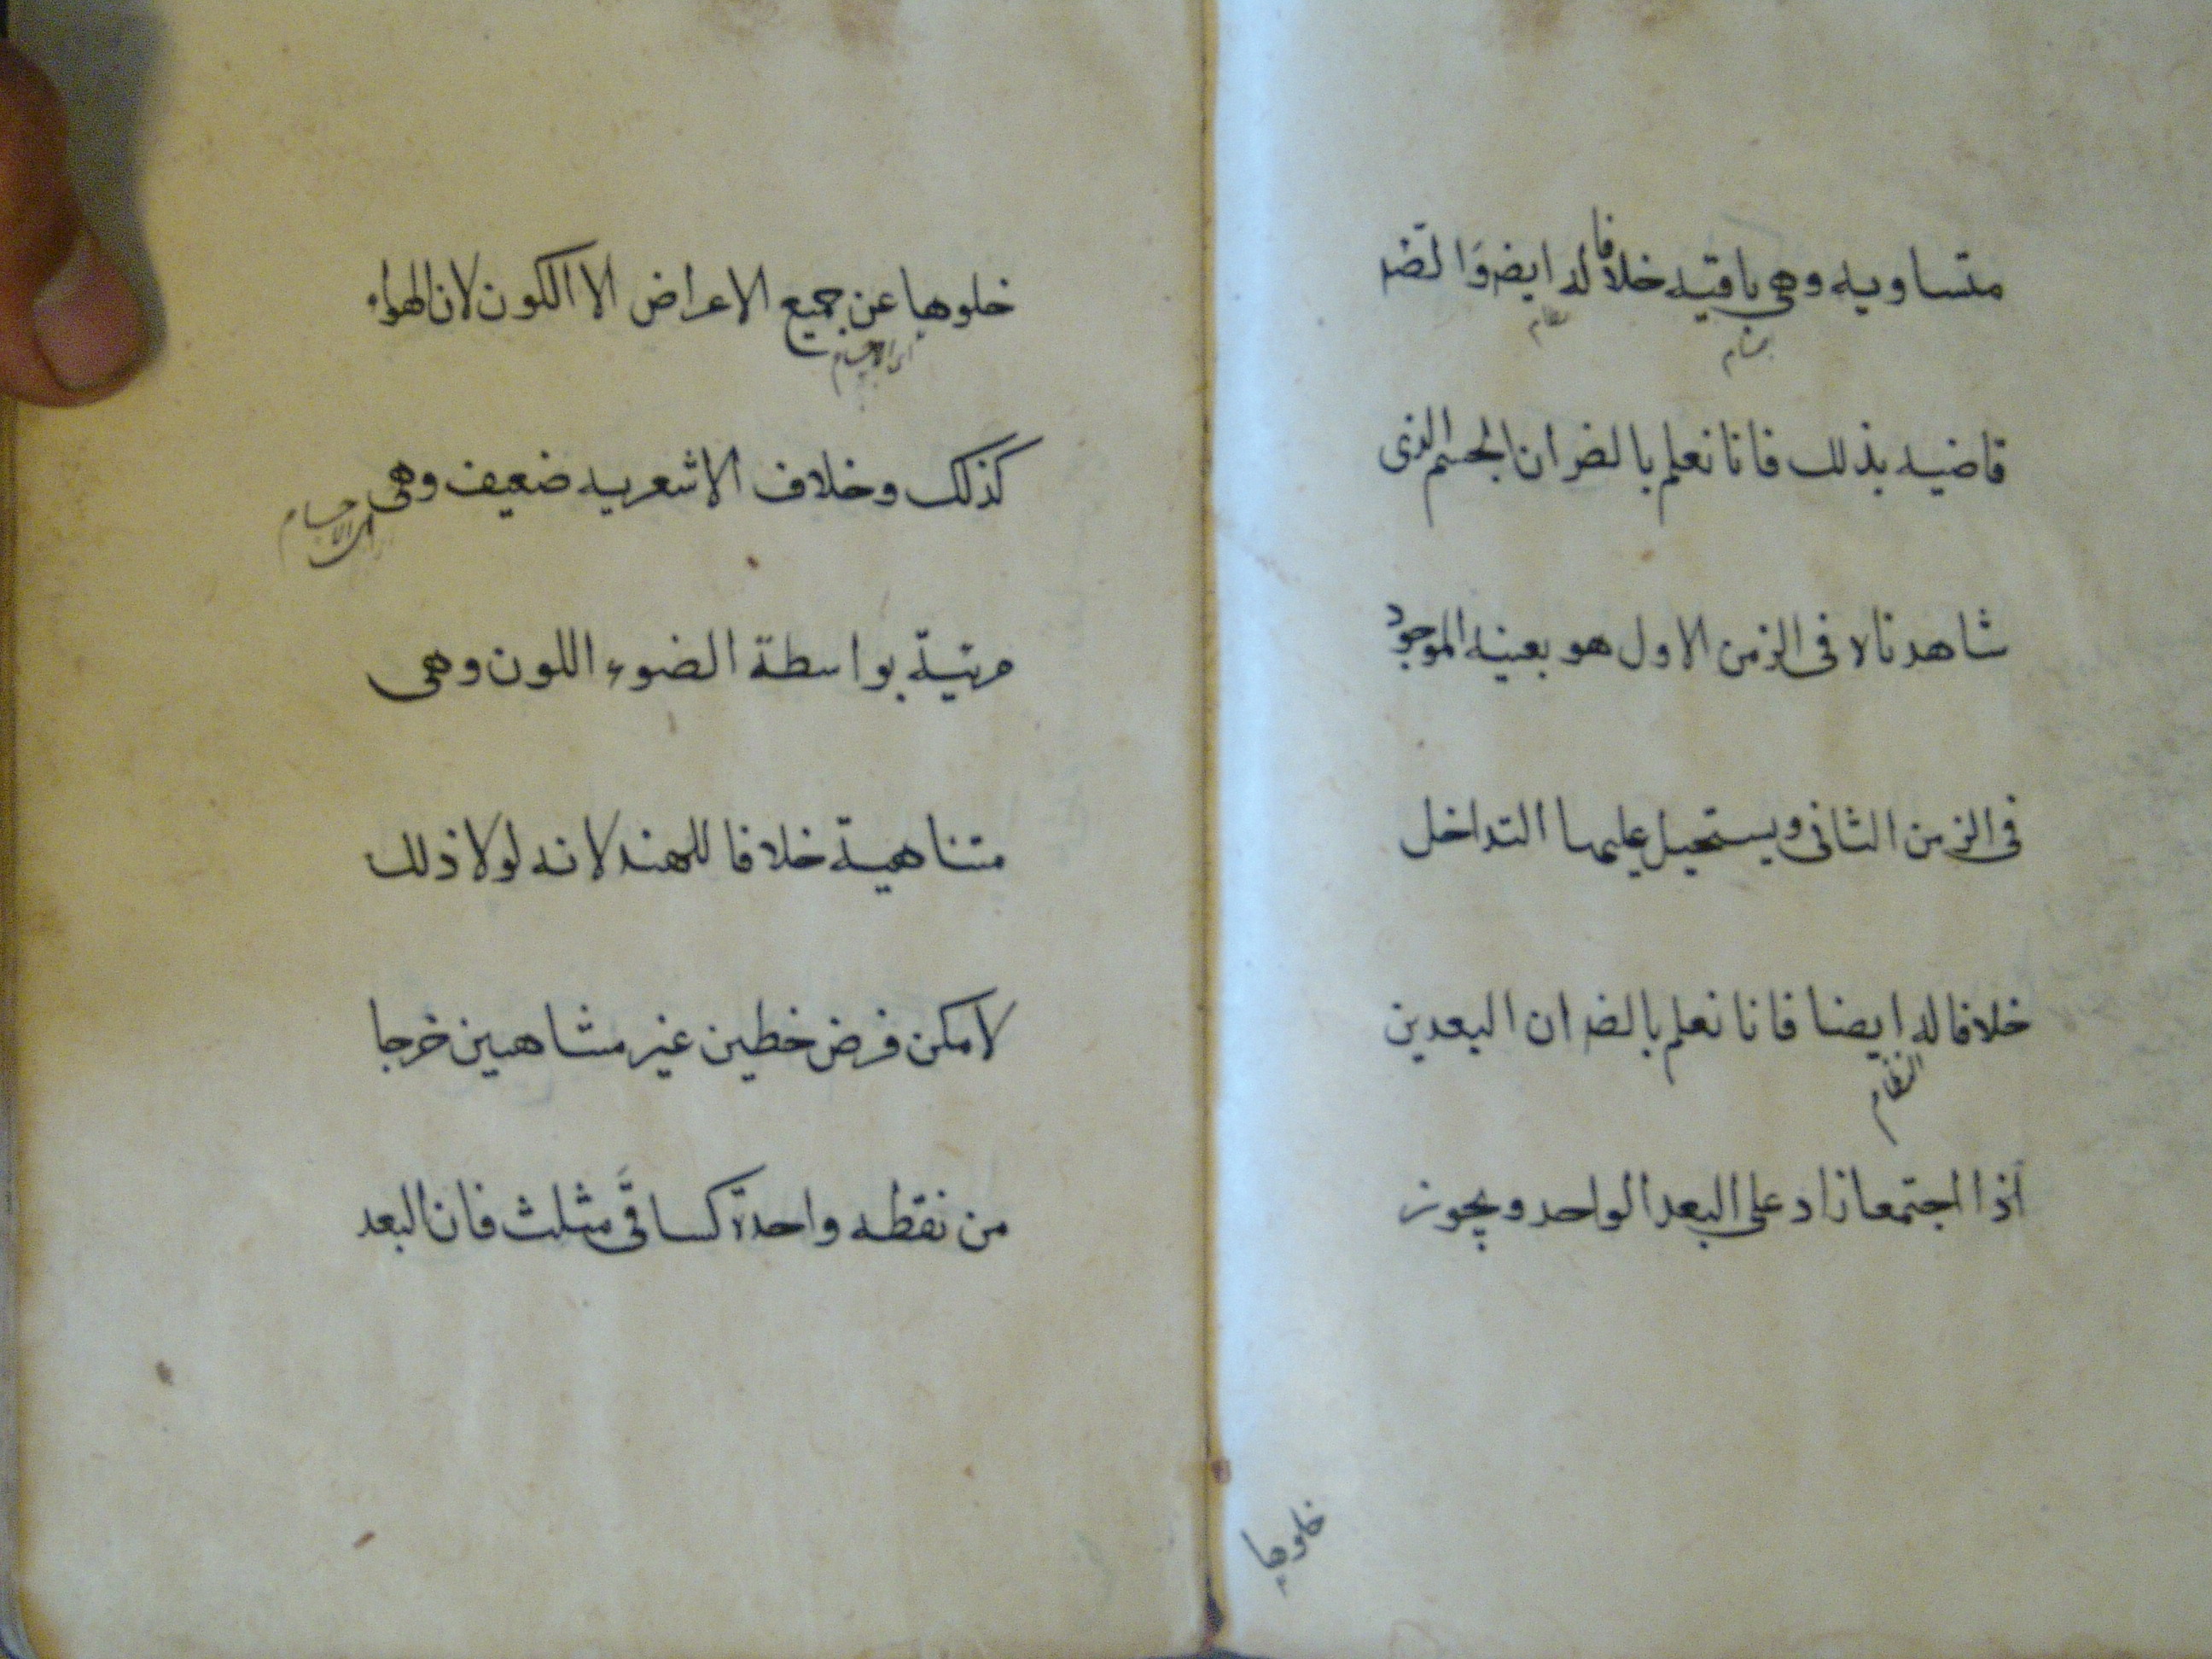 متساويه وهى باقيه خلافا له ايضا والضر
نظام
قاضيه بذلك فانا نعلم بالضر ان الجسم الذى
شاهدناه فى الزمن الاول هو بعينه الموجود
فى الزمن الثانى ويستحيل عليها التداخل
خلافا له ايضا فانا نعلم بالضر ان البعدين
النظام
اذا اجتمعا زاد على البعد الواحد ويجوز
خلوها
خلوها عن جميع الاعراض الا الكون لان الهواء
اى الاجسام
كذلك وخلاف الاشعريه ضعيف وهى
اى الاجسام
مرئيّة بواسطة الضوء اللون وهى
متناهيّة خلافا للهند لانه لولا ذلك
لامكن فرض خطين غير متناهيين خرجا
من نقطه واحدة كساقى مثلث فان البعد